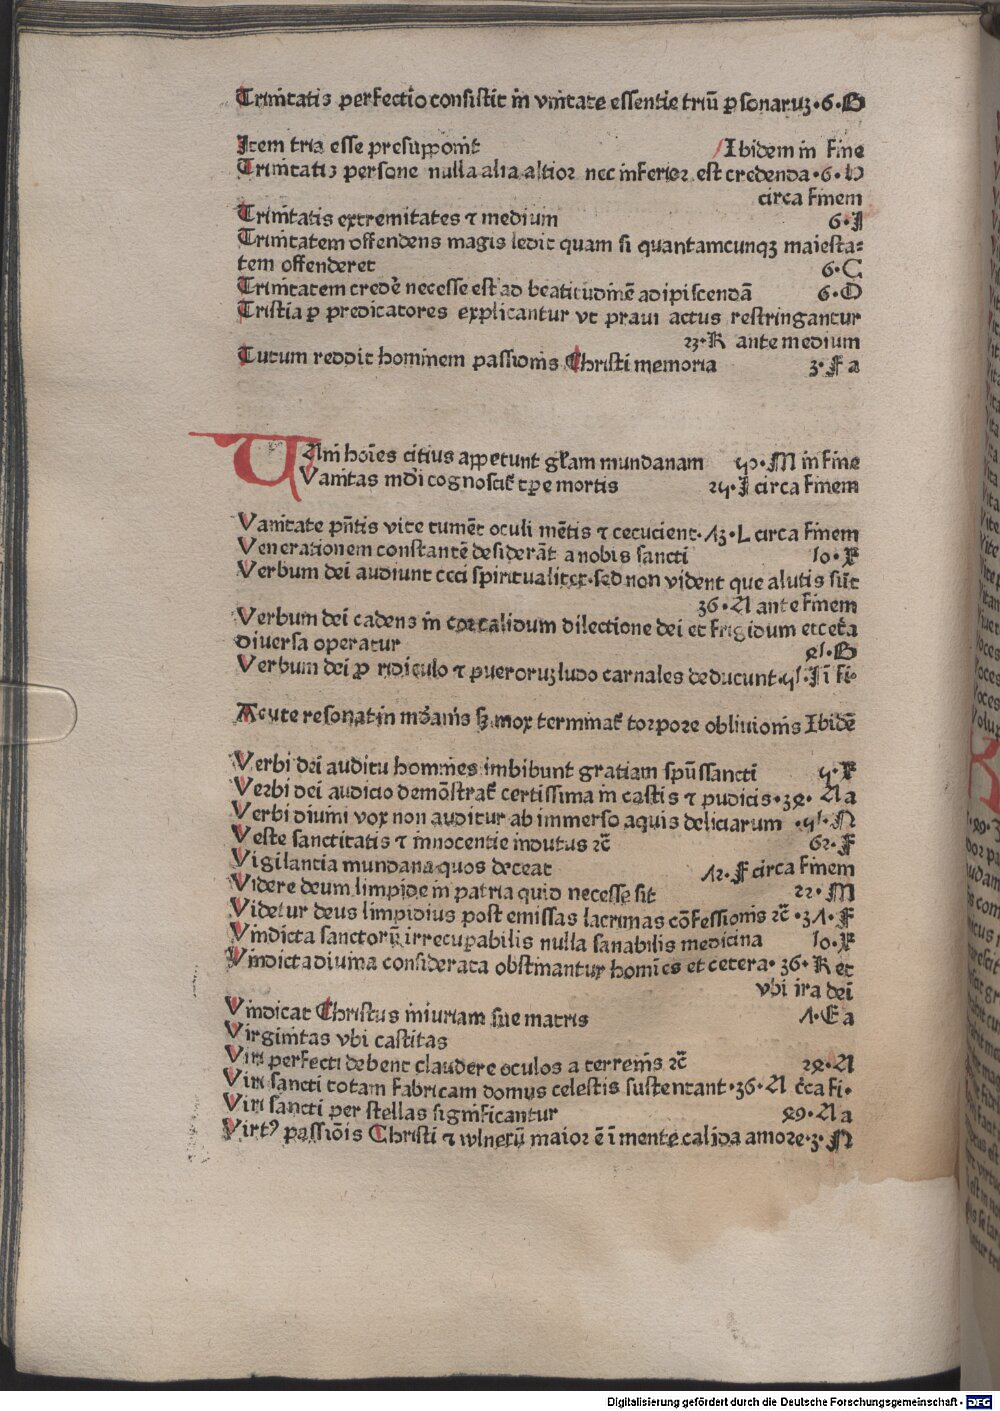 Trinitatis perfectio consistit in vnitate essentie triū ꝑsonaruꝫ·6·B
Item tria esse presupponit Ibidem in fine
Trinitatis persone nulla alia altior nec inferior est credenda·6·H
circa finem
Trinitatis extremitates ⁊ medium 6·I
Trinitatem offendens magis ledit quam si quantamcunqꝫ maiesta⸗
tem offenderet 6·C
Trinitatem credē necesse est ad beatitudinē adipiscendā 6·D
Tristia ꝑ predicatores explicantur vt praui actus restringantur
23·K ante medium
Tutum reddit hominem passionis Christi memoria 3·F a
VAni hoīes citius appetunt gīam mundanam 40·M in fine
Vanitas mdi cognoscit tpe mortis 24·I circa finem
Vanitate pn̄tis vite tument oculi mētis ⁊ cecucient·13·L circa finem
Venerationem constantē desiderāt a nobis sancti 10·P
Verbum dei audiunt ceci spiritualiter·sed non vident que alutis sūt
36·A ante finem
Verbum dei cadens in cor calidum dilectione dei et frigidum etcetā
diuersa operatur 21·B
Verbum dei ꝓ ridiculo ⁊ pueroruꝫ ludo carnales deducunt·41·I ī fi·
Acute resonat in mdanis sꝫ mox terminat torpore obliuionis Ibidē
Verbi dei auditu homines imbibunt gratiam spūssancti 4·P
Verbi dei audicio demōstrat certissima in castis ⁊ pudicis·32·A a
Verbi diuini vox non auditur ab immerso aquis deliciarum ·41·N
Veste sanctitatis ⁊ innocentie indutus ꝛc̄ 62·F
Vigilancia mundana quos deceat 12·F circa finem
Videre deum limpide in patria quid necesse sit 22·M
Videtur deus limpidius post emissas lacrimas cōfessionis ꝛc̄ ·31·F
Vindicta sanctorū irrecuꝑabilis nulla sanabilis medicina 10·P
Vindicta diuina considerata obstinantur homines et cetera·36·K et
vbi ira dei
Vindicat Christus iniuriam sue matris 1·E a
Virginitas vbi castitas
Viri perfecti debent claudere oculos a terrenis ꝛc̄ 22·A
Viri sancti totam fabricam domus celestis sustentant·36·A c̄ca fi·
Viri sancti per stellas significantur 29·A a
Virtꝰ passiōis Christi ⁊ wlnerū maior ē ī mente calida amore·3·N
Digitalisierung gefördert durch die Deutsche Forschungsgemeinschaft - DFG